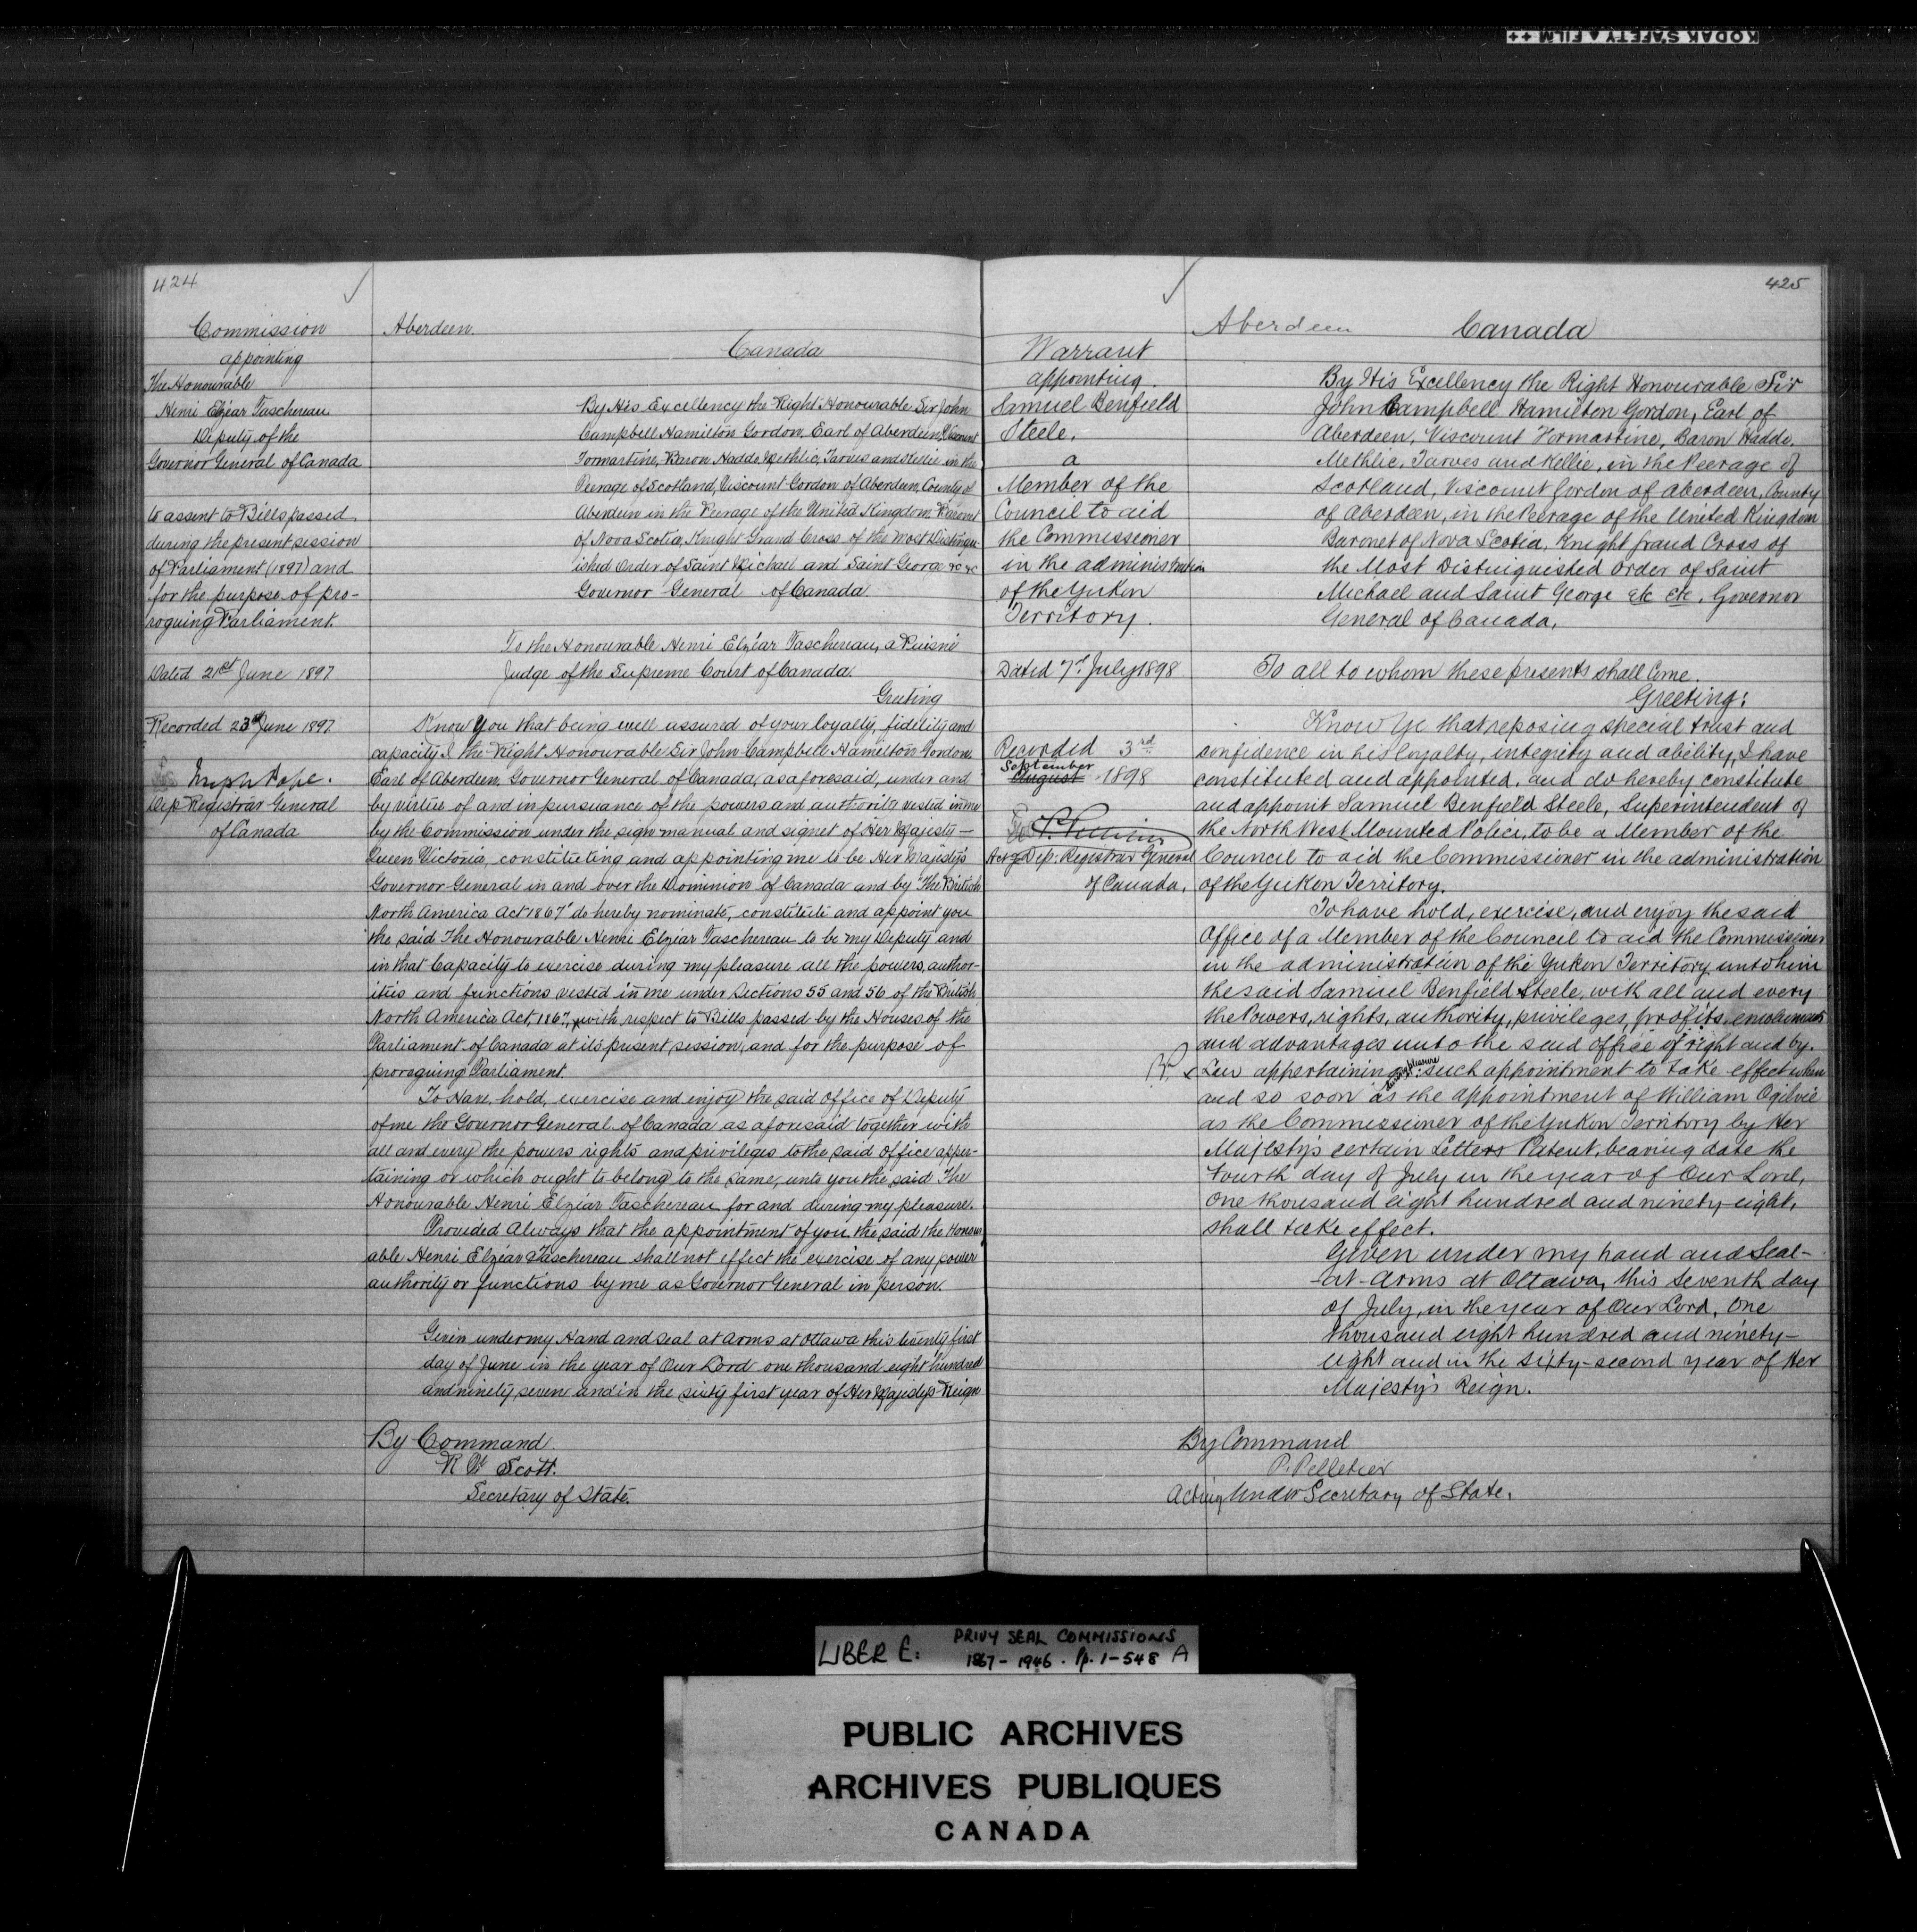 KODAK SAFETY FILM ++
424
Commission
appointing
The Honourable
Henri Elzéar Taschereau
Deputy of the
Governor General of Canada
to assent to Bills passed
during the present session
of Parliament (1897) and
for the purpose of pro-
roguing Parliament.
Dated 21st June 1897
Recorded 23rd June 1897
Joseph Pope.
Dep Registrar General
of Canada
Aberdeen.
Canada
By His Excellency the Right Honourable Sir John
Campbell Hamilton Gordon, Earl of Aberdeen, Viscount
Formartine, Baron Haddo, Methlic, Tarves and Kellie in the
Peerage of Scotland, Viscount Gordon of Aberdeen, County of
Aberdeen in the Peerage of the United Kingdom Baronet
of Nova Scotia, Knight Grand Cross of the Most Distingu
ished Order of Saint Michael and Saint George &c &c
Governor General of Canada
To the Honourable Henri Elzéar Taschereau, a Puisné
Judge of the Supreme Court of Canada.
Greeting
Know You that being well assured of your loyalty, fidelity and
capacity I the Right Honourable Sir John Campbell Hamilton Gordon,
Earl of Aberdeen, Governor General of Canada, as aforesaid, under and
by virtue of and in pursuance of the powers and authority vested in me
by the Commission under the sign manual and signet of Her Majesty –
Queen Victoria, constituting and appointing me to be Her Majesty's
Governor General in and over the Dominion of Canada and by "The British
North America Act 1867" do hereby nominate, constitute and appoint you
the said The Honourable Henri Elzéar Taschereau to be my Deputy and
in that Capacity to exercise during my pleasure all the powers, author-
ities and functions vested in me under Sections 55 and 56 of the British
North America Act, 1867, with respect to Bills passed by the Houses of the
Parliament of Canada at its present session, and for the purpose of
proroguing Parliament.
To Have, hold, exercise and enjoy the said Office of Deputy
of me the Governor General of Canada as aforesaid together with
all and every the powers rights and privileges to the said Office apper-
taining or which ought to belong to the same, unto you the said The
Honourable Henri Elzéar Taschereau for and during my pleasure.
Provided Always that the appointment of you the said the Honour
able Henri Elzéar Taschereau shall not effect the exercise of any power
authority or functions by me as Governor General in person.
Given under my Hand and Seal at Arms at Ottawa this twenty first
day of June in the year of Our Lord one thousand eight hundred
and ninety seven and in the sixty first year of Her Majesty's Reign
By Command
R W Scott.
Secretary of State.
425
Warrant
appointing.
Samuel Benfield
Steele.
a
Member of the
Council to aid
the Commissioner
in the administration
of the Yukon
Territory.
Dated 7th July 1898
Recorded 3rd
September
August 1898
Actg Dep: Registrar General
of Canada.
Aberdeen
Canada
By His Excellency the Right Honourable Sir
John Campbell Hamilton Gordon, Earl of
Aberdeen, Viscount Formartine, Baron Haddo,
Methlic, Tarves and Kellie, in the Peerage of
Scotland, Viscount Gordon of Aberdeen, County
of Aberdeen, in the Peerage of the United Kingdom
Baronet of Nova Scotia, Knight Grand Cross of
the Most Distinguished Order of Saint
Michael and Saint George etc etc. Governor
General of Canada.
To all to whom these presents shall Come.
Greeting:
Know Ye that reposing special trust and
confidence in his loyalty, integrity and ability, I have
constituted and appointed, and do hereby constitute
and appoint Samuel Benfield Steele, Superintendent of
the North West Mounted Police, to be a Member of the
Council to aid the Commissioner in the administration
of the Yukon Territory.
To have hold, exercise, and enjoy the said
Office of a Member of the Council to aid the Commissioner
in the administration of the Yukon Territory unto him
the said Samuel Benfield Steele, with all and every
the Powers, rights, authority, privileges, profits, emoluments
and advantages unto the said office of right and by
Law appertaining during pleasure: such appointment to take effect when
and so soon as the appointment of William Ogilvie
as the Commissioner of the Yukon Territory by Her
Majesty's certain Letters Patent, bearing date the
Fourth day of July in the year of Our Lord,
One thousand eight hundred and ninety-eight,
shall take effect.
Given under my hand and Seal-
-at-Arms at Ottawa, this Seventh day
of July, in the year of Our Lord, One
thousand eight hundred and ninety-
eight and in the Sixty-second year of Her
Majesty's Reign.
By Command
P. Pelletier
Acting Under Secretary of State.
LIBER E: PRIVY SEAL COMMISSIONS
1867-1946. Pp. 1-548 A
PUBLIC ARCHIVES
ARCHIVES PUBLIQUES
CANADA